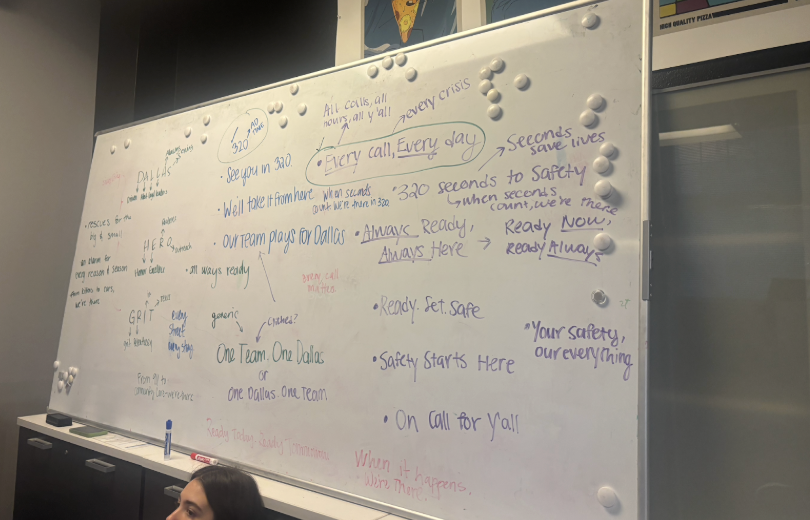 HIGH QUALITY PIZZA
320
• See you in 320.
• We'll take it from here
• OUR Team plays for Dallas
• All ways ready
generic
clichés?
One Team. One Dallas
or
One Dallas. One Team
every call
matters
All calls, all
hours, all y'all
every crisis
• Every call, Every day
when seconds
count we're there in 320
• 320 seconds to Safety
Seconds
save lives
when seconds
count, we're there
• Always Ready,
Always Here → Ready Now,
Ready Always
• Ready. Set. Safe
• Safety Starts Here
• On Call for Y'all
"Your safety,
our everything
When it happens,
We're There.
Ready Today. Ready
DALLAS
• rescues for the
big & small
every reason & season
we're there
HERO
Human
GRIT
Every
Street
Every Story
From 911 to